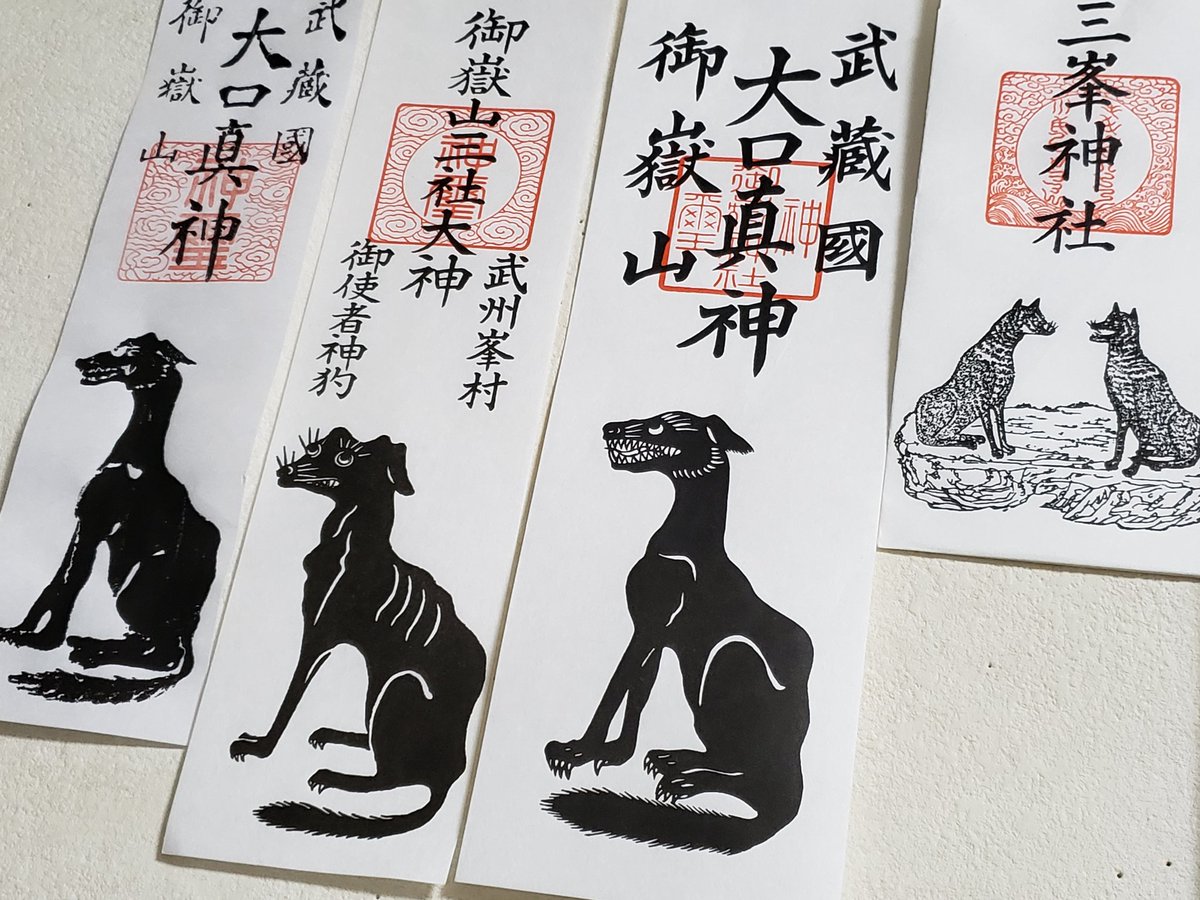 武藏國
大口真神
御嶽山
御嶽山三社大神
武州峯村
御使者神犳
武藏國
大口真神
御嶽山
三峯神社